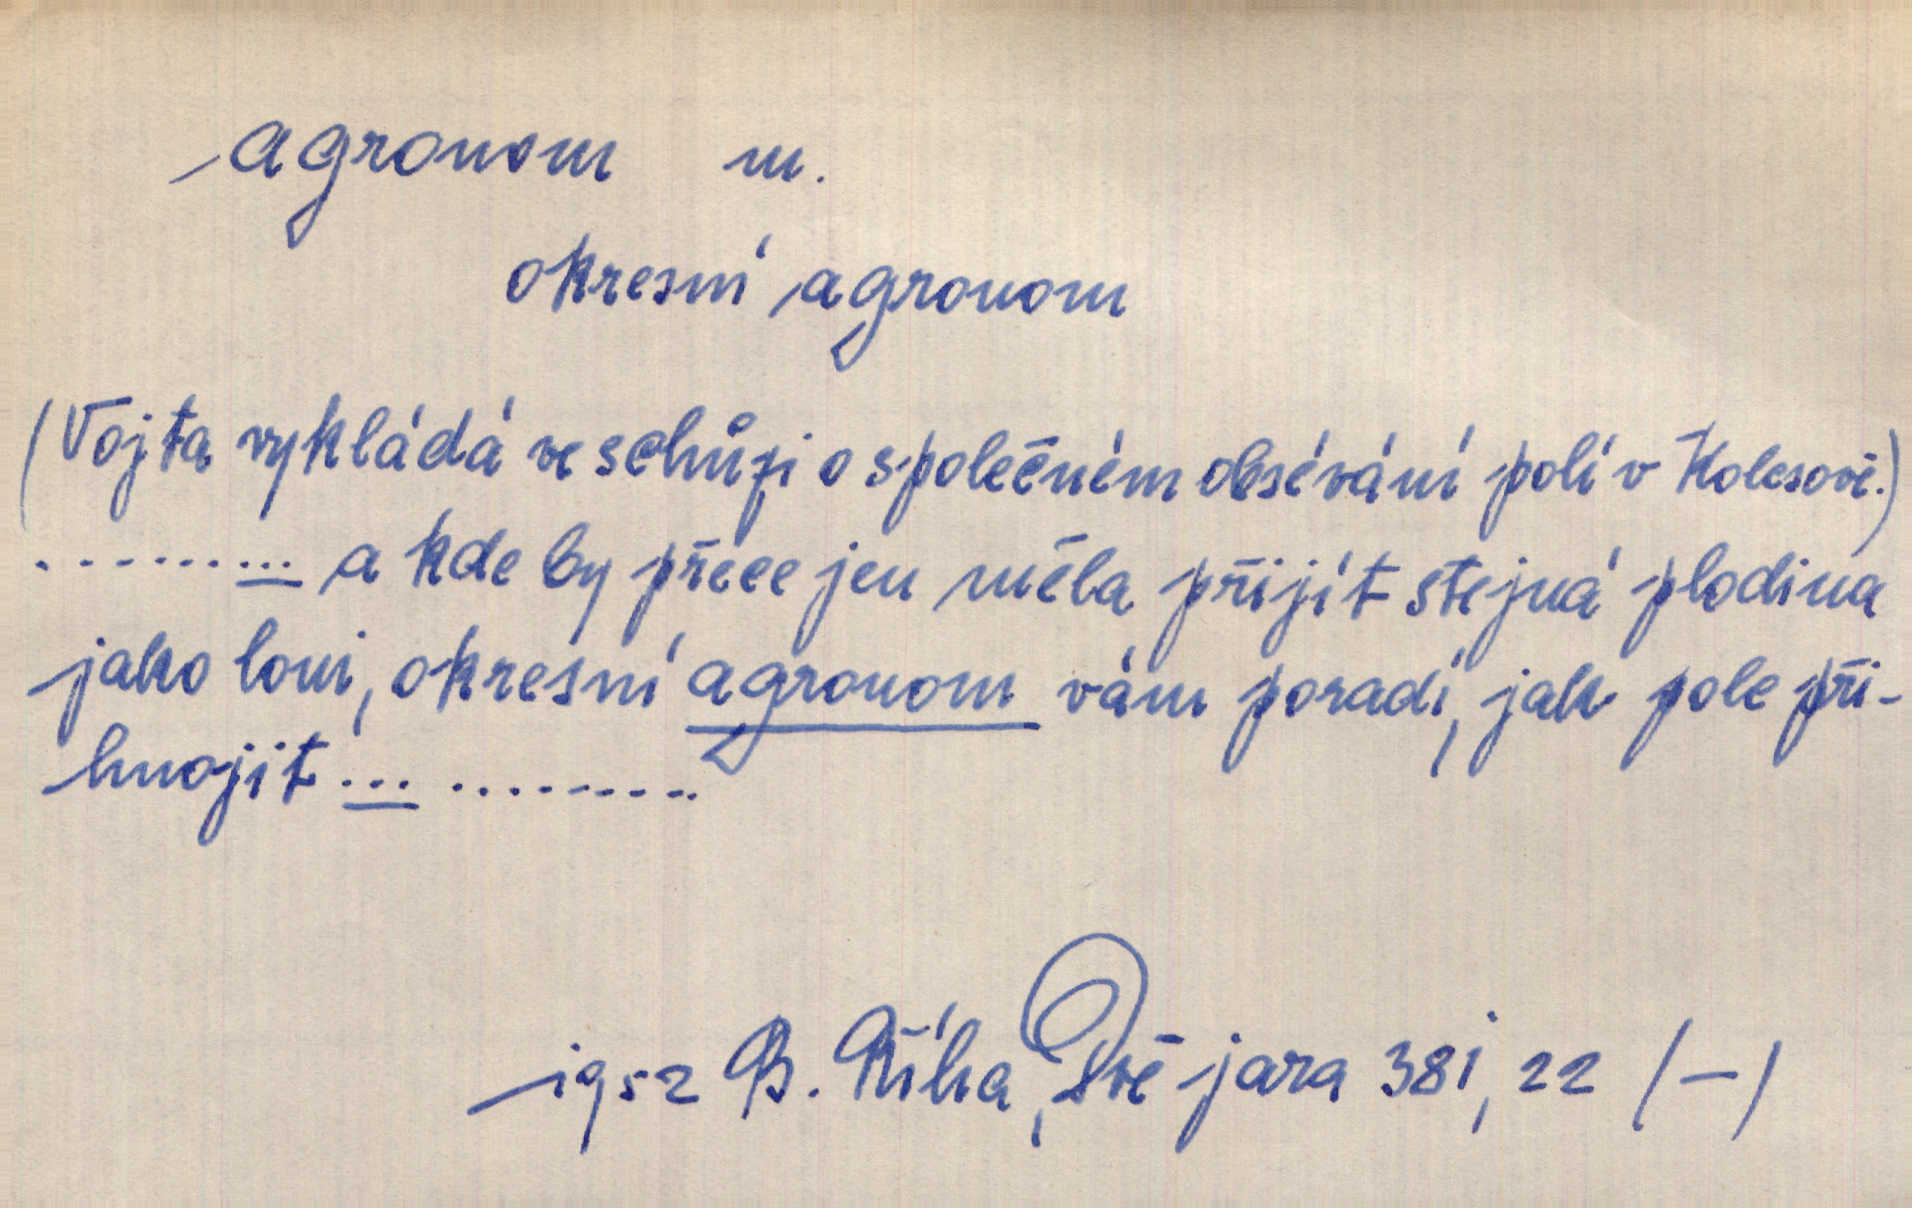 agronom m.
okresní agronom
(Vojta vykládá ve schůzi o společném obsévání polí v Kolesově.)
............ a kde by přece jen měla přijít stejná plodina
jako loni, okresní agronom vám poradí, jak pole při-
hnojit ... ..........
1952 B. Říha, Dvě jara 381, 22 (-)